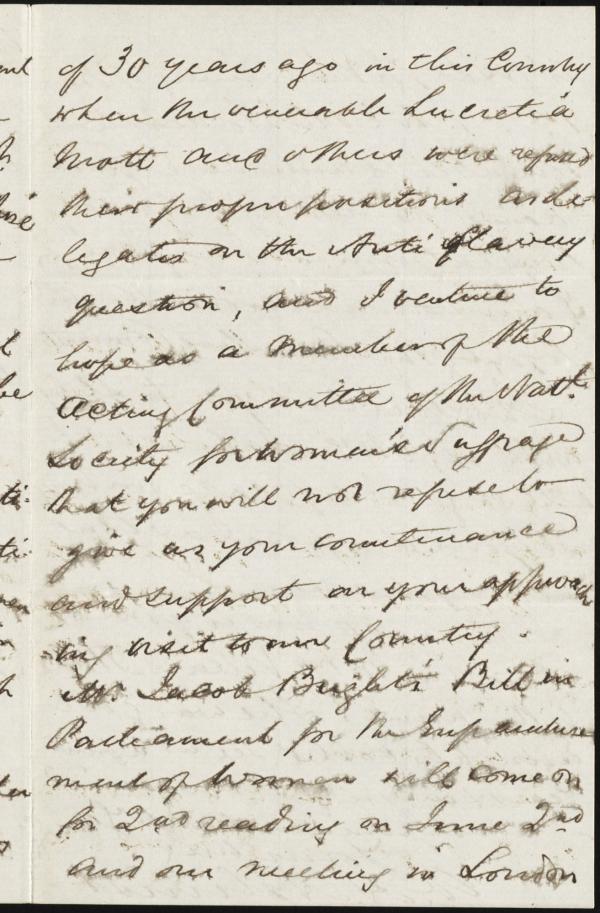 of 30 years ago in this Country
when the venerable Lucretia
Mott and others were refused
their proper positions as de-
legates on the Anti Slavery
question, and I venture to
hope as a member of the
Acting Committee of the Natl.
Society for Women's Suffrage
that you will not refuse to
give us your countenance
and support on your approach
ing visit to our Country.
Mr. Jacob Bright's Bill in
Parliament for the Enfranchise
ment of Women will come on
for 2nd reading on June 2nd
and our meeting in London